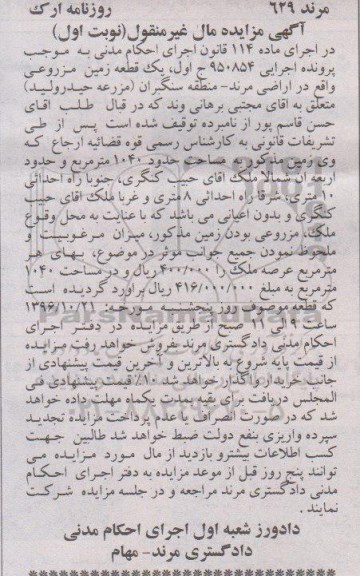 مرند ۶۲۹ روزنامه ارک
آگهی مزایده مال غیرمنقول(نوبت اول)
در اجرای ماده ۱۱۴ قانون اجرای احکام مدنی به موجب
پرونده اجرایی ۹۵۰۸۵۴ ج اول، یک قطعه زمین مزروعی
واقع در اراضی مرند-منطقه سنگبران (مزرعه حیدرولید)
متعلق به اقای مجتبی برهانی وند که در قبال طلب اقای
حسن قاسم پور از نامبرده توقیف شده است پس از طی
تشریفات قانونی به کارشناس رسمی قوه قضائیه ارجاع که
وی زمین مذکور به مساحت حدود ۱۰۴۰ مترمربع و حدود
اربعه آن شمالا ملک اقای حبیب کنگری، جنوبا راه احداثی
۱۰ متری، شرقا راه احداثی ۸ متری و غربا ملک اقای حبیب
کنگری و بدون اعیانی می باشد که با عنایت به محل وقوع
ملک، مزروعی بودن زمین مذکور، میزان مرغوبیت و
ملحوظ نمودن جمیع جوانب موثر در موضوع، بهای هر
مترمربع عرصه ملک را ۴۰۰/۰۰۰ ریال و در مساحت ۱۰۴۰
مترمربع به مبلغ ۴۱۶/۰۰۰/۰۰۰ ریال براورد گردیده است
که قطعه موصوف روز پنجشنبه مورخه ۱۳۹۶/۱۰/۲۱
ساعت ۹ الی ۱۱ صبح از طریق مزایده در دفتر اجرای
احکام مدنی دادگستری مرند بفروش خواهد رفت مزایده
از قیمت پایه شروع به بالاترین و آخرین قیمت پیشنهادی از
جانب خریدار واگذار خواهد شد ۱۰٪ قیمت پیشنهادی فی
المجلس دریافت برای بقیه بمدت یکماه مهلت داده خواهد
شد که در صورت انصراف یا عدم پرداخت مزایده تجدید
سپرده واریزی بنفع دولت ضبط خواهد شد طالبین جهت
کسب اطلاعات بیشترو بازدید از مال مورد مزایده می
توانند پنج روز قبل از موعد مزایده به دفتر اجرای احکام
مدنی دادگستری مرند مراجعه و در جلسه مزایده شرکت
نمایند .
دادورز شعبه اول اجرای احکام مدنی
دادگستری مرند- مهام